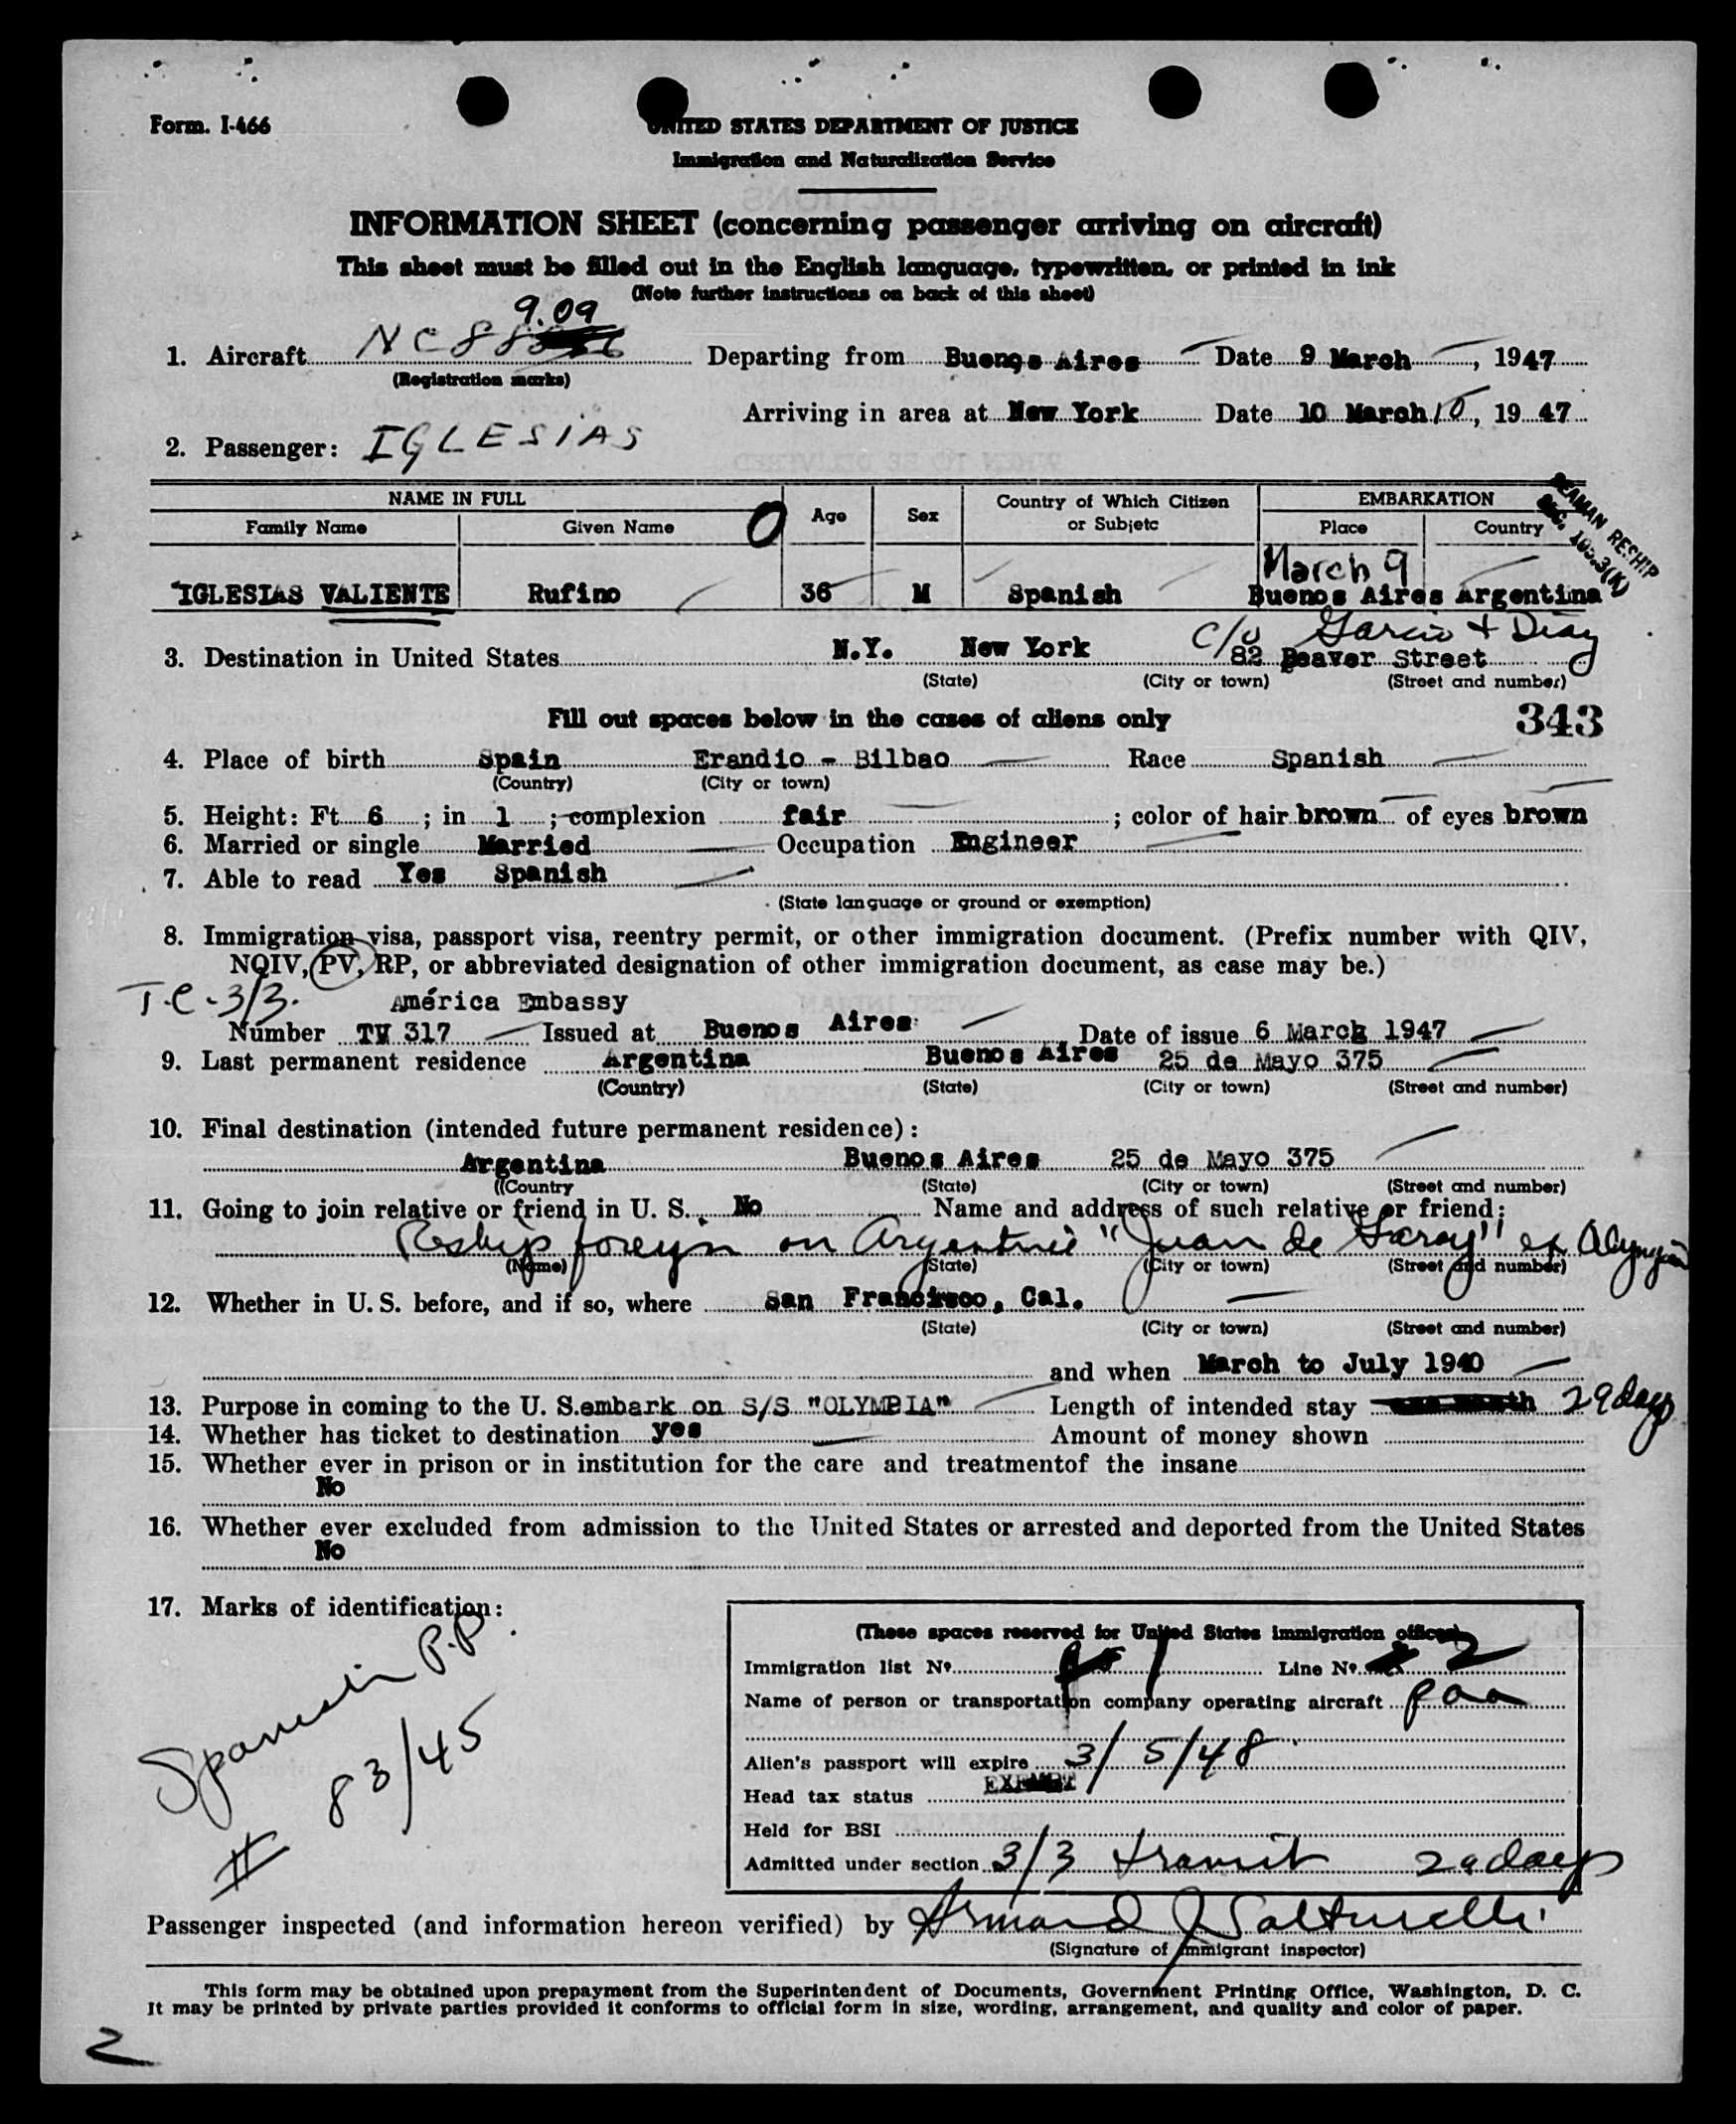 Form. I-466
UNITED STATES DEPARTMENT OF JUSTICE
Immigration and Naturalization Service
INFORMATION SHEET (concerning passenger arriving on aircraft)
This sheet must be filled out in the English language, typewritten, or printed in ink
(Note further instructions on back of this sheet)
9.09
1. Aircraft NC88 Departing from Buenos Aires Date 9 March, 1947
(Registration marks)
Arriving in area at New York Date 10 March 10, 1947
2. Passenger: IGLESIAS
NAME IN FULL Age Sex Country of Which Citizen or Subjetc EMBARKATION
Family Name Given Name Place Country
SEAMAN RESHIP
March 9
IGLESIAS VALIENTE Rufino 36 M Spanish Buenos Aires Argentina
C/o Garcia + Diaz
3. Destination in United States N.Y. New York 82 Beaver Street
(State) (City or town) (Street and number)
Fill out spaces below in the cases of aliens only 343
4. Place of birth Spain Erandio - Bilbao Race Spanish
(Country) (City or town)
5. Height: Ft 6 ; in 1 ; complexion fair ; color of hair brown of eyes brown
6. Married or single Married Occupation Engineer
7. Able to read Yes Spanish
(State language or ground or exemption)
8. Immigration visa, passport visa, reentry permit, or other immigration document. (Prefix number with QIV,
NQIV, PV, RP, or abbreviated designation of other immigration document, as case may be.)
T.C-3/3. América Embassy
Number TV 317 Issued at Buenos Aires Date of issue 6 March 1947
9. Last permanent residence Argentina Buenos Aires 25 de Mayo 375
(Country) (State) (City or town) (Street and number)
10. Final destination (intended future permanent residence) :
Argentina Buenos Aires 25 de Mayo 375
((Country (State) (City or town) (Street and number)
11. Going to join relative or friend in U. S. No Name and address of such relative or friend:
Reship foreign on Argentine "Juan de Garay" ex Olympia
(Name) (State) (City or town) (Street and number)
12. Whether in U. S. before, and if so, where San Francisco, Cal.
(State) (City or town) (Street and number)
and when March to July 1940
13. Purpose in coming to the U. S. embark on S/S "OLYMPIA" Length of intended stay 29 days
14. Whether has ticket to destination yes Amount of money shown
15. Whether ever in prison or in institution for the care and treatmentof the insane
No
16. Whether ever excluded from admission to the United States or arrested and deported from the United States
No
17. Marks of identification:
Spanish P.P.
# 83/45
(These spaces reserved for United States immigration officer)
Immigration list Nº 1 Line Nº 2
Name of person or transportation company operating aircraft paa
Alien's passport will expire 3/5/48
Head tax status EXEMPT
Held for BSI
Admitted under section 3/3 transit 29 days
Passenger inspected (and information hereon verified) by Armand J
(Signature of immigrant inspector)
This form may be obtained upon prepayment from the Superintendent of Documents, Government Printing Office, Washington, D. C.
It may be printed by private parties provided it conforms to official form in size, wording, arrangement, and quality and color of paper.
2